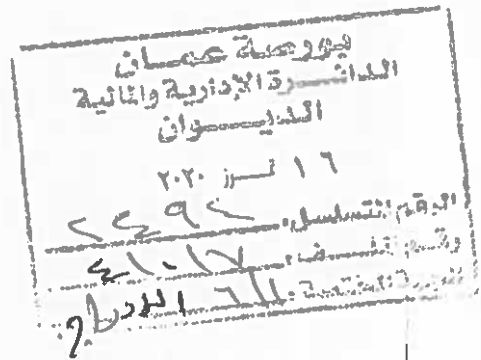 بورصة عمان
الدائرة الإدارية والمالية
الديوان
١٦ تموز ٢٠٢٠
الرقم المتسلسل:
رقم الملف: ٤١٠١٧
الجهة المختصة: